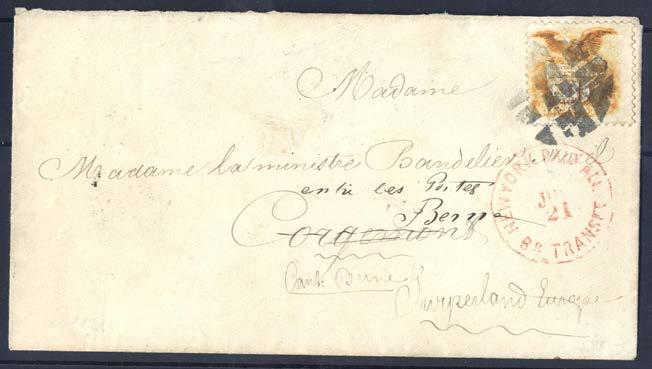 Madame
Madame la ministre Bandelier
entre les Portes
Berne
Corgemont
Cant. Berne
Swyzerland Europe
NEW YORK PAID ALL
21
BR. TRANSIT